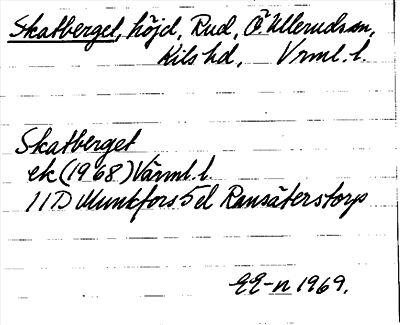 Skatberget, höjd, Rud, Ö. Ullerudsn,
Kils hd, Vrml. l.
Skatberget
ek (1968) Värml. l.
11D Munkfors 5 d Ransäterstorp
EE-n 1969.